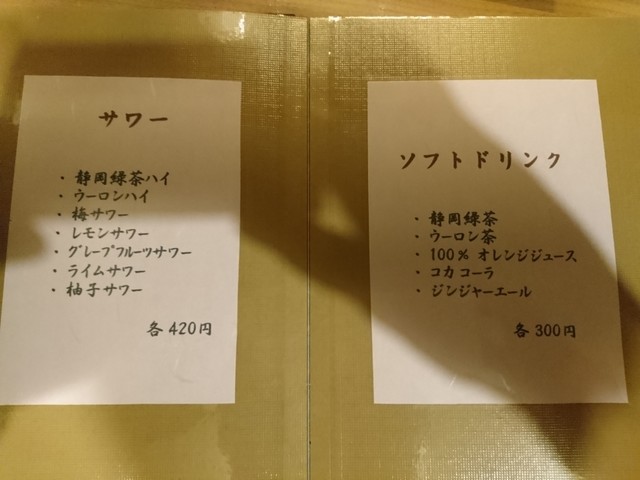 サワー
・静岡緑茶ハイ
・ウーロンハイ
・梅サワー
・レモンサワー
・グレープフルーツサワー
・ライムサワー
・柚子サワー
各420円
ソフトドリンク
・静岡緑茶
・ウーロン茶
・100% オレンジジュース
・コカコーラ
・ジンジャーエール
各300円